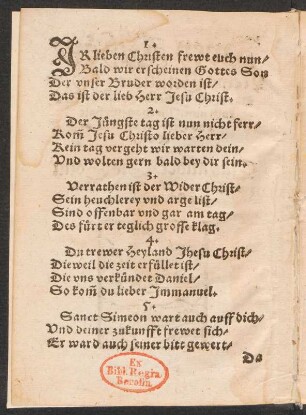 1.
IR lieben Christen frewt euch nun/
Bald wir erscheinen Gottes Son
Der vnser Bruder worden ist/
Das ist der lieb Herr Jesu Christ.
2.
Der Jüngste tag ist nun nicht ferr/
Kom̃ Jesu Christo lieber Herr/
Kein tag vergeht wir warten dein/
Vnd wolten gern bald bey dir sein.
3.
Verrathen ist der Wider Christ/
Sein heuchlerey vnd arge list/
Sind offenbar vnd gar am tag/
Des fürt er teglich grosse klag.
4.
Du trewer Heyland Jhesu Christ/
Dieweil die zeit erfüllet ist/
Die vns verkündet Daniel/
So kom̃ du lieber Immanuel.
5.
Sanct Simeon wart auch auff dich/
Vnd deiner zukunfft frewet sich/
Er ward auch seiner bitt gewert/
Da
Ex
Bibl. Regia
Berolin.